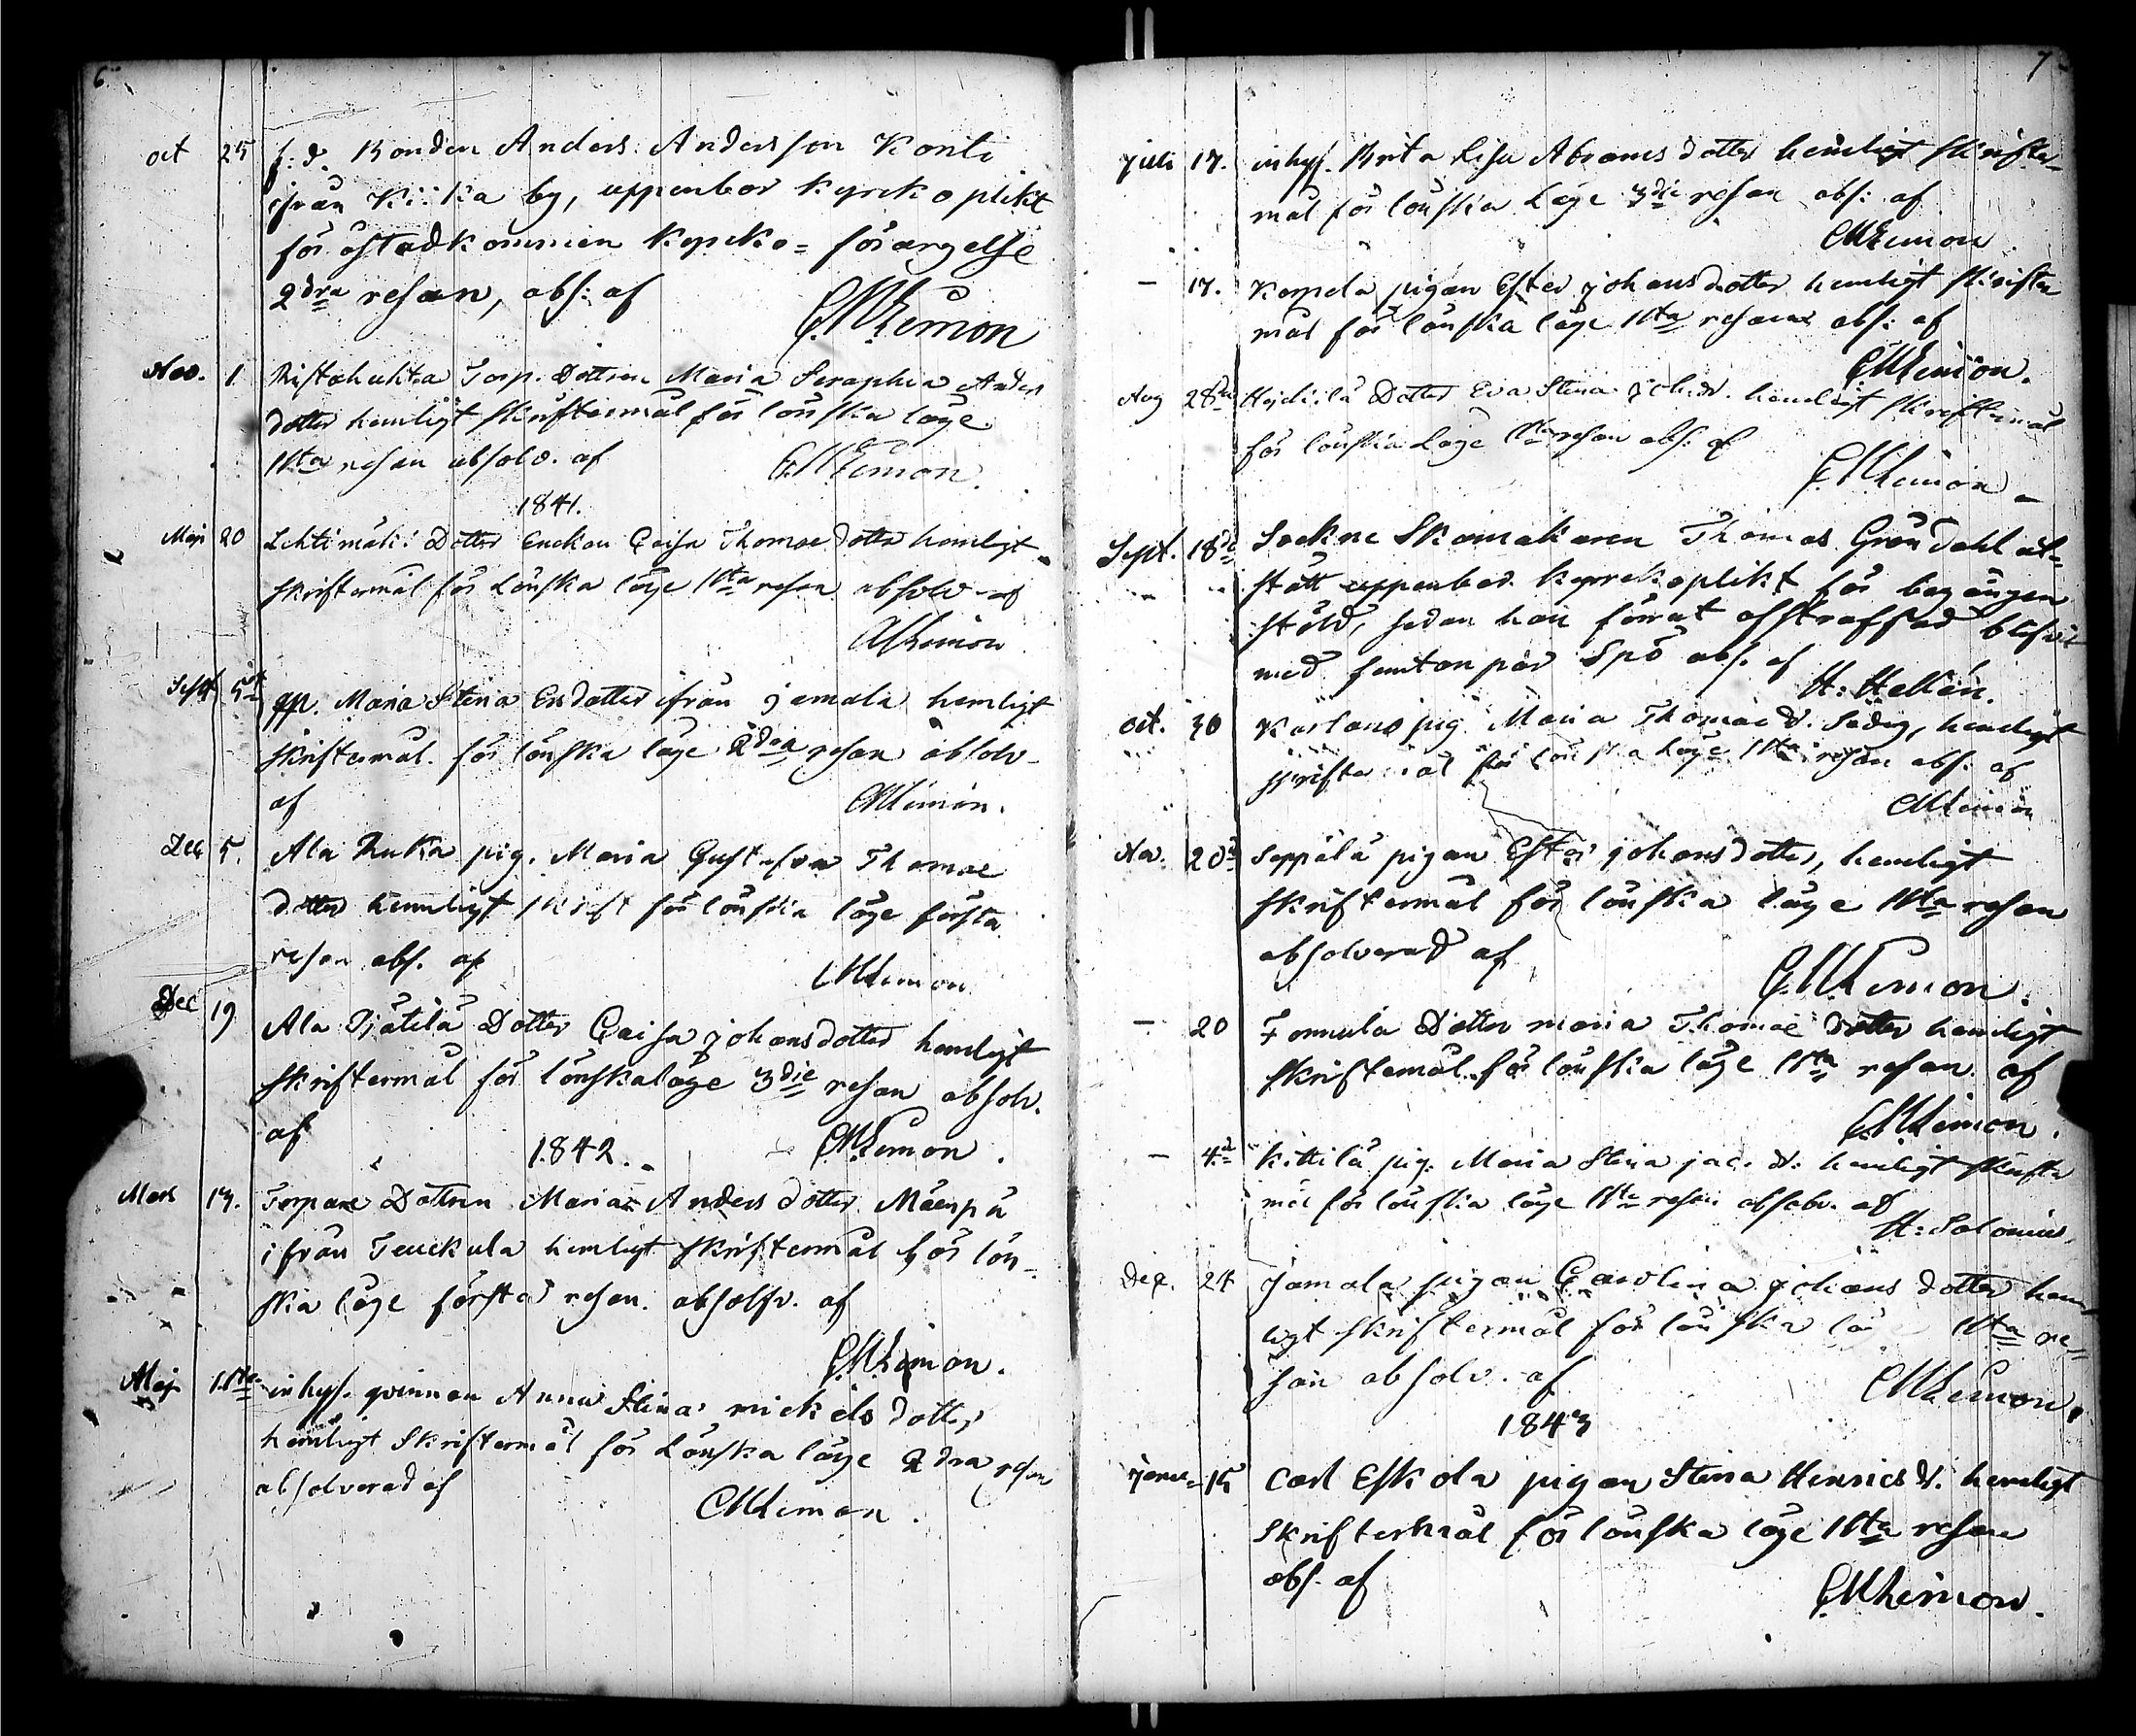 6.
oct 25 f: d. Bonden Anders Andersson Konti
ifrån Kiika by, uppenbar kyrkoplikt
för åstadkommen kyrko= förargelse
2dra resan, abs: af
CMLemon
Nov. 1 Ristahuhta Torp. Dottren Maria Seraphia Anders
dotter hemligt skriftermål för lönska läge
1sta resan absolv. af CMLemon.
1841.
Maji 20 Lehtimäki Dotter Enckan Caisa Thomae dotter hemligt
skriftermål för Lönska läge 1sta resan absolv af
CMLemon
Sept 5 qp. Maria Stina Ersdotter ifrån Jamala hemligt
skriftermål för lönska läge 2dra resan absolv
af CMLemon.
Dec 5. Ala Ruka pig. Maria Gustafva Thomae
dotter hemligt skrift för lönska läge första
resan abs. af CMLemon
Dec 19 Ala Pjätilä Dotter Caisa Johansdotter hemligt
skriftermål för lönskaläge 3die resan absolv.
af CMLemon.
1842.
Mars 13. Torpare Dottren Maria Anders dotter Mäenpä
ifrån Teuckula hemligt skriftermål för lön-
ska läge första resan. absolv. af
CMLemon.
Maj 1sta inhys. qvinnan Anna Stina mickels dotter
hemligt Skriftermål för Lönska läge 2dra resan
absolverad af
CMLemon.
7
Juli 17. inhys. Brita Lisa Abrams dotter hemligt skrifter-
mål för lönska Läge 3die resan abs: af
CMLemon
- 17. pigan Ester Johansdotter hemligt skrifter
mål för lönska läge 1sta resan abs: af
CMLemon.
Aug 28 Dotter Eva Stina Joh: d. hemligt skriftermål
för lönska Läge 1sta resan abs: af
CMLemon
Sept. 18 Sockne Skomakaren Thomas Gröndahl ut-
stått uppenbar kyrkoplikt för begången
stöld, sedan han förut afstraffad blifvit
med femton par Spö abs. af
H: Hellén.
oct. 30 Karlans pig Maria Thomae d. hemligt
skriftermål för Lönska Läge 1sta resan abs. af
CMLemon
Nov. 20 Seppälä pigan Ester Johansdotter, hemligt
skriftermål för lönska läge 1sta resan
absolverad af
CMLemon.
- 20 Fonnula Dotter maria Thomae dotter hemligt
skriftermål för lönska läge 1sta resan af
CMLemon.
- 4 Kittilä pig. Maria Stina jac. d: hemligt skrifter
mål för lönska läge 1sta resan absolv. af
H: Salonius.
Dec. 24 Jamala pigan Carolina Johans dotter hem
ligt skriftermål för lönska lä 1sta re=
san absolv. af CMLemon.
1843
Janu= 15 Carl Eskola pigan Stina Henrics d. hemligt
Skriftermål för lönska läge 1sta resan
abs. af
CMLemon.